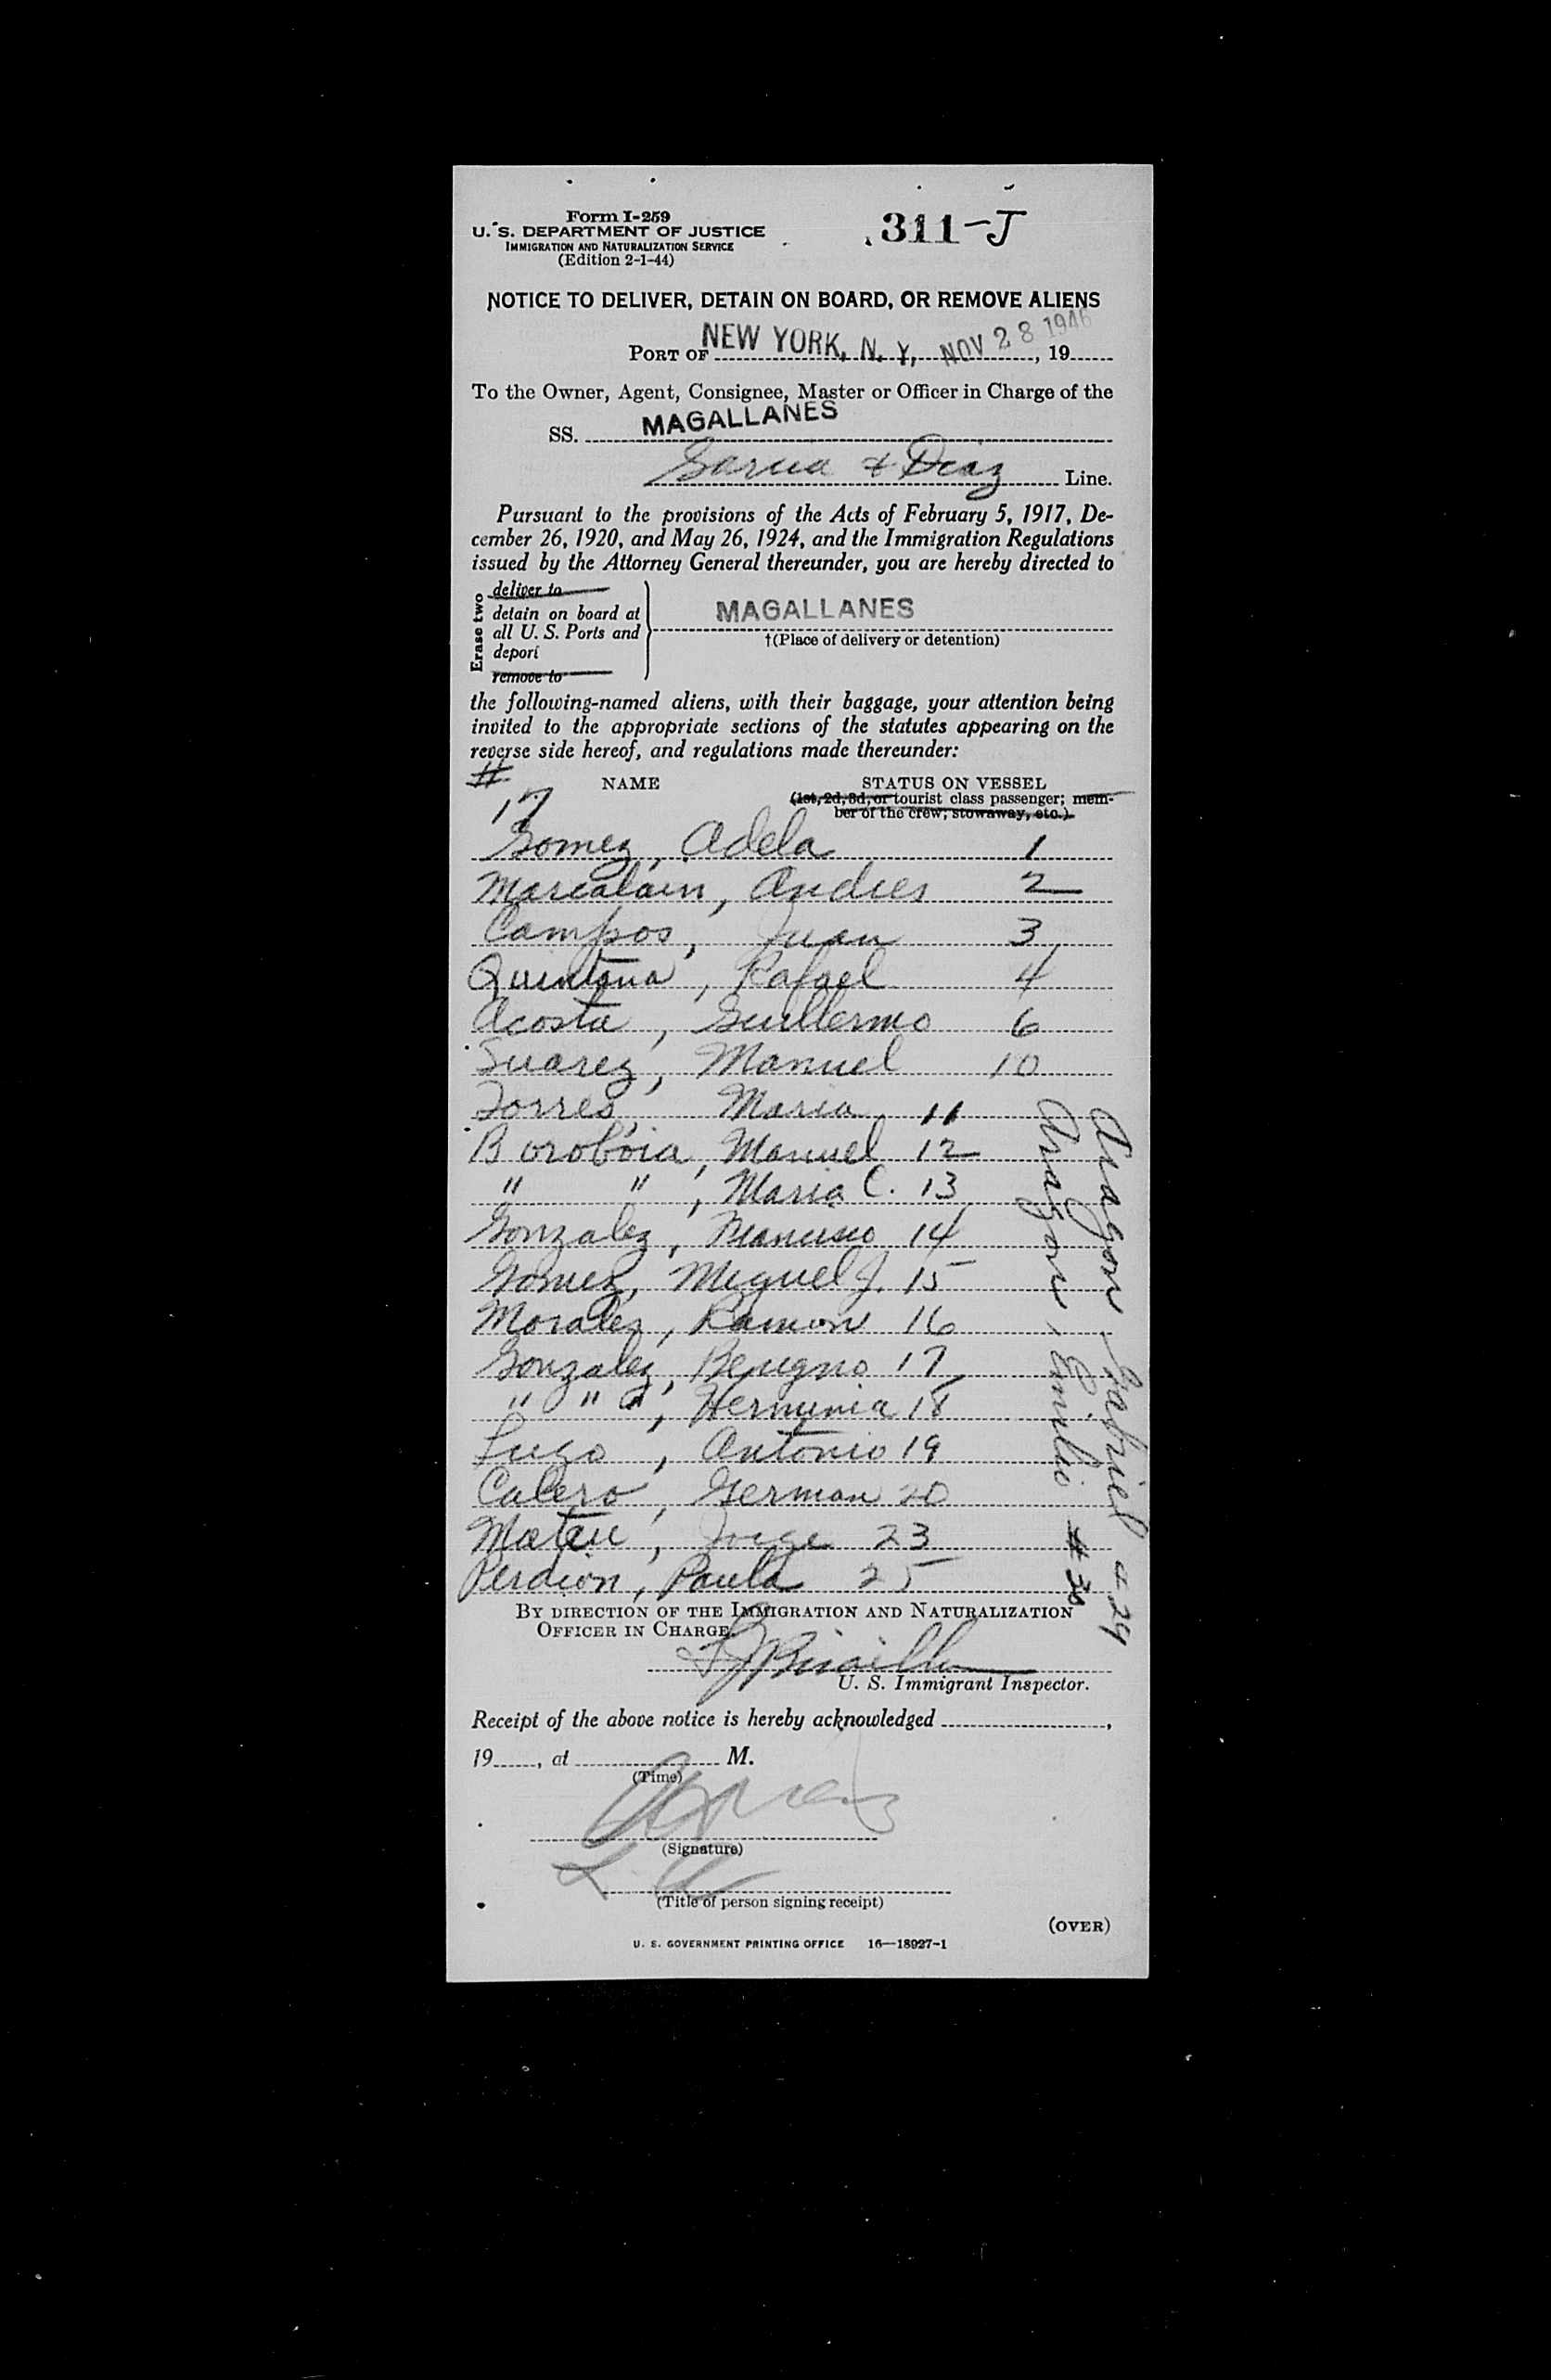 Form I-259
U. S. DEPARTMENT OF JUSTICE
IMMIGRATION AND NATURALIZATION SERVICE
(Edition 2-1-44)
311-J
NOTICE TO DELIVER, DETAIN ON BOARD, OR REMOVE ALIENS
PORT OF NEW YORK, N. Y, NOV 28 1946, 19
To the Owner, Agent, Consignee, Master or Officer in Charge of the
SS. MAGALLANES
Garcia & Diaz Line.
Pursuant to the provisions of the Acts of February 5, 1917, De-
cember 26, 1920, and May 26, 1924, and the Immigration Regulations
issued by the Attorney General thereunder, you are hereby directed to
Erase two
deliver to
detain on board at
all U. S. Ports and
deport
remove to
MAGALLANES
†(Place of delivery or detention)
the following-named aliens, with their baggage, your attention being
invited to the appropriate sections of the statutes appearing on the
reverse side hereof, and regulations made thereunder:
#
17
NAME STATUS ON VESSEL
(1st, 2d, 3d, or tourist class passenger; mem-
ber of the crew; stowaway, etc.)
Gomez, Adela 1
Marcalain, Andres 2
Campos, Juan 3
Quintana, Rafael 4
Acosta, Guillermo 6
Suarez, Manuel 10
Torres, Maria 11
Boroboia, Manuel 12
" ", Maria C. 13
Gonzalez, 14
Gomez, Miguel J. 15
Morales, Ramon 16
Gonzalez, Benigno 17
" " ", Herminia 18
Lugo, Antonio 19
Calero, German 20
Mateu, Jorge 23
Perdion, Paula 25
Aragon, Gabriel a 29
Aragon, Emilio # 30
BY DIRECTION OF THE IMMIGRATION AND NATURALIZATION
OFFICER IN CHARGE.
U. S. Immigrant Inspector.
Receipt of the above notice is hereby acknowledged ,
19 , at M.
(Time)
(Signature)
(Title of person signing receipt)
(OVER)
U. S. GOVERNMENT PRINTING OFFICE 16—18927-1